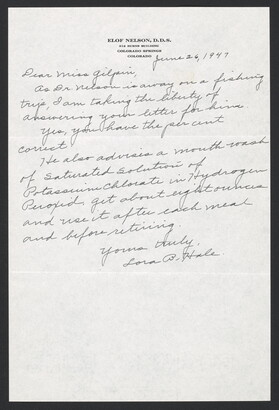 ELOF NELSON, D.D.S.
BURNS BUILDING
COLORADO SPRINGS
COLORADO
June 26, 1947
Dear Miss Gilpin,
As Dr. Nelson is away on a fishing
trip, I am taking the liberty of
answering your letter for him.
Yes, you have the per cent
correct.
He also advises a mouth wash
of Saturated Solution of
Potassium Chlorate in Hydrogen
Peroxid, get about eight ounces
and use it after each meal
and before retiring.
Yours truly,
Lora B. Hale.